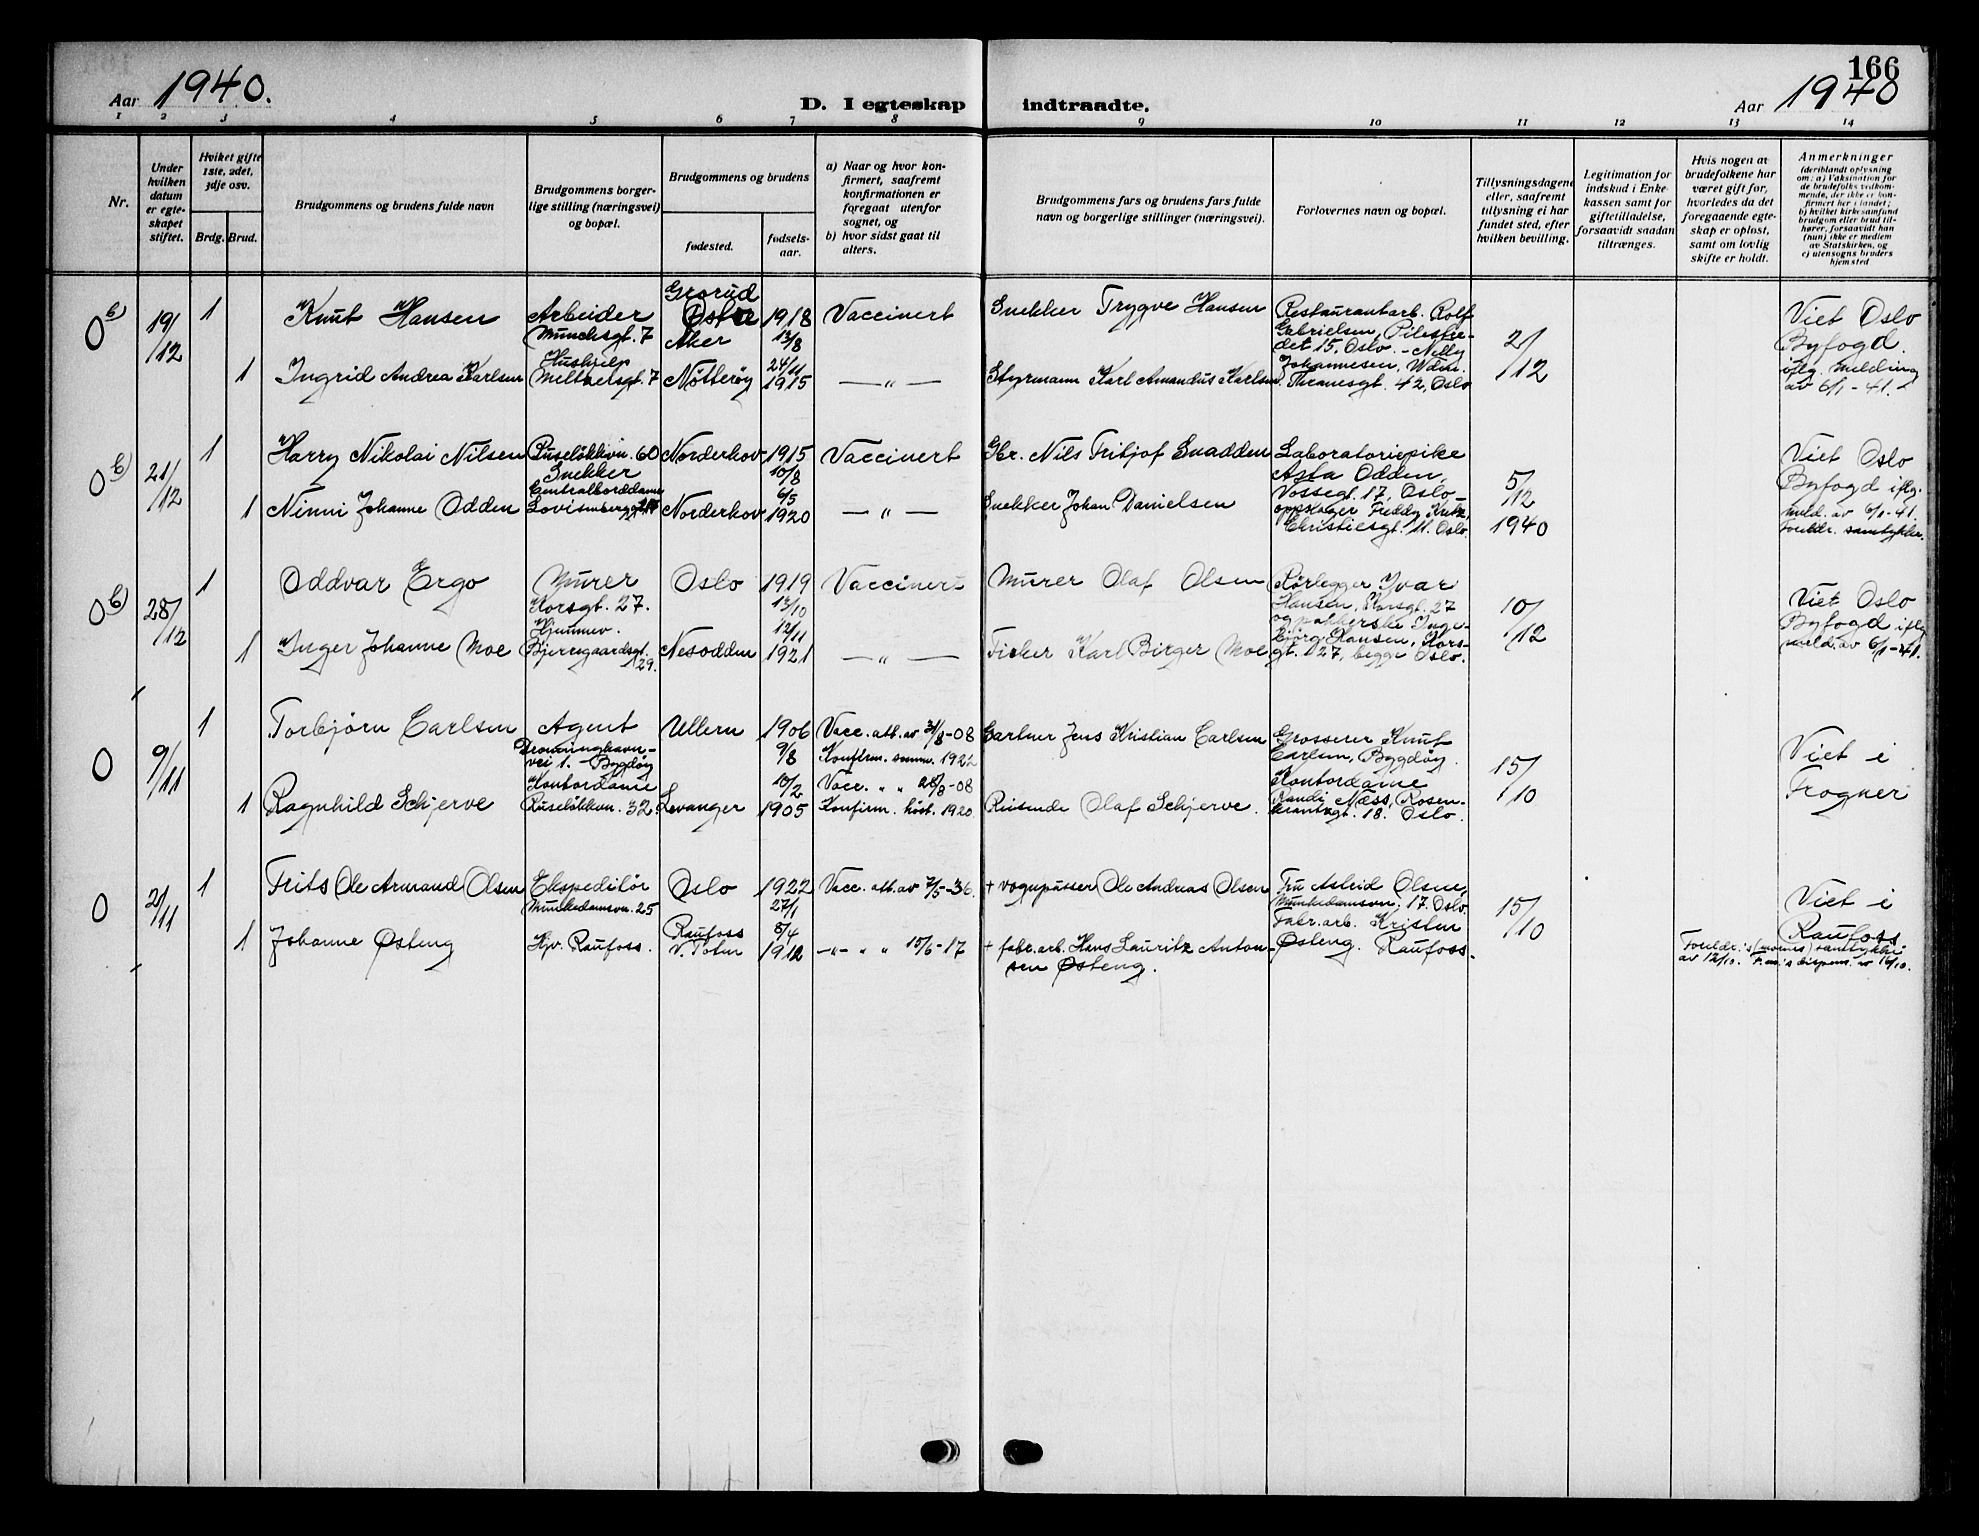 166
Aar 1940.
D. I egteskap indtraadte.
Aar 1940
1 2 3 4 5 6 7 8 9 10 11 12 13 14
Nr.
Under hvilken datum er egteskapet stiftet.
Hvilket gifte 1ste, 2det, 3dje osv.
Brdg. Brud.
Brudgommens og brudens fulde navn
Brudgommens borgerlige stilling (næringsvei) og bopæl.
Brudgommens og brudens
fødested.
fødselsaar.
a) Naar og hvor konfirmert, saafremt konfirmationen er foregaat utenfor sognet, og
b) hvor sidst gaat til alters.
Brudgommens fars og brudens fars fulde navn og borgerlige stillinger (næringsvei).
Forlovernes navn og bopæl.
Tillysningsdagene eller, saafremt tillysning ei har fundet sted, efter hvilken bevilling.
Legitimation for indskud i Enkekassen samt for giftetilladelse, forsaavidt saadan tiltrænges.
Hvis nogen av brudefolkene har været gift før, hvorledes da det foregaaende egteskap er opløst, samt om lovlig skifte er holdt.
Anmerkninger
(deriblandt oplysning om: a) Vaksination for de brudefolks vedkommende, der ikke er konfirmert her i landet;
b) hvilket kirkesamfund brudgom eller brud tilhører, forsaavidt han (hun) ikke er medlem av Statskirken, og
c) utensogns bruders hjemsted
0 b) 19/12 1 Knut Hansen
Arbeider
Munchsgt. 7
Grorud
Aker
1918
13/8
Vaccinert
Snekker Trygve Hansen
Restaurantarb. Rolf
Gabrielsen, Pilestredet 15, Oslo. - Nelly
Johannesen, Wdm.
Thranesgt. 42, Oslo
2/12
Viet Oslo
Byfogd.
iflg. melding
av 6/1-41.
1 Ingrid Andrea Karlsen
Hushjelp
Meltzersgt. 7
Nøtterøy
24/11
1915
— " —
Styrmann Karl Amandus Karlsen
0 b) 21/12 1 Harry Nikolai Nilsen
Ruseløkkvn. 60
Snekker
Norderhov
1915
10/8
Vaccinert
Gbr. Nils Fritjof Snadden
Laboratoriepike
Asta Odden,
Vossegt. 17, Oslo -
oppsager Freddy
Christiesgt. 11. Oslo.
5/12
1940
Viet Oslo
Byfogd iflg.
meld. av 6/1-41.
Foreldr. samtykke.
1 Ninni Johanne Odden
Centralborddame
Norderhov
6/5
1920
— " —
Snekker Johan Danielsen
0 b) 28/12 1 Oddvar Ergo
Murer
Korsgt. 27.
Oslo
1919
13/10
Vaccinert
Murer Olaf Olsen
Rørlegger Ivar
Hansen, Korsgt. 27
og pakkerske Ingebjørg Hansen, Korsgt. 27, begge Oslo.
10/12
Viet Oslo
Byfogd iflg
meld. av 6/1-41.
1 Inger Johanne Moe
Hjemmev.
Bjerregaardsgt.
29.
Nesodden
12/11
1921
— " —
Fisker Karl Birger Moe
0 9/11 1 Torbjørn Carlsen
Agent
Dronninghavnvei 1. - Bygdøy
Ullern
1906
9/8
Vacc. att. av 31/8-08
Konfirm. somm. 1922
Gartner Jens Kristian Carlsen
Grosserer Knut
Carlsen, Bygdøy.
Kontordame
Randi Næss, Rosenkrantzgt. 18. Oslo.
15/10
Viet i
Frogner
1 Ragnhild Schjerve
Kontordame
Ruseløkkvn. 32.
Levanger
10/2
1905
Vacc. " " 28/8-08
Konfirm. høst. 1920
Reisende Olaf Schjerve.
0 2/11 1 Frits Ole Armand Olsen
Ekspeditør
Munkedamsvn. 25
Oslo
1922
27/1
Vacc. att. av 7/5-36.
+ vognpusser Ole Andreas Olsen
Fru Astrid Olsen,
Munkedamsvn. 17. Oslo.
Fabr. arb. Kristen
Østeng. Raufoss.
15/10
Viet i
Raufoss
1 Johanne Østeng
Hjv. Raufoss.
Raufoss
V. Toten
5/4
1912
—"— " " 15/6-17
+ fabr. arb. Hans Lauritz Antonsen Østeng.
Foreldr.'s (morens) samtykke
av 12/10. F.m.'s dispens. av 16/10.